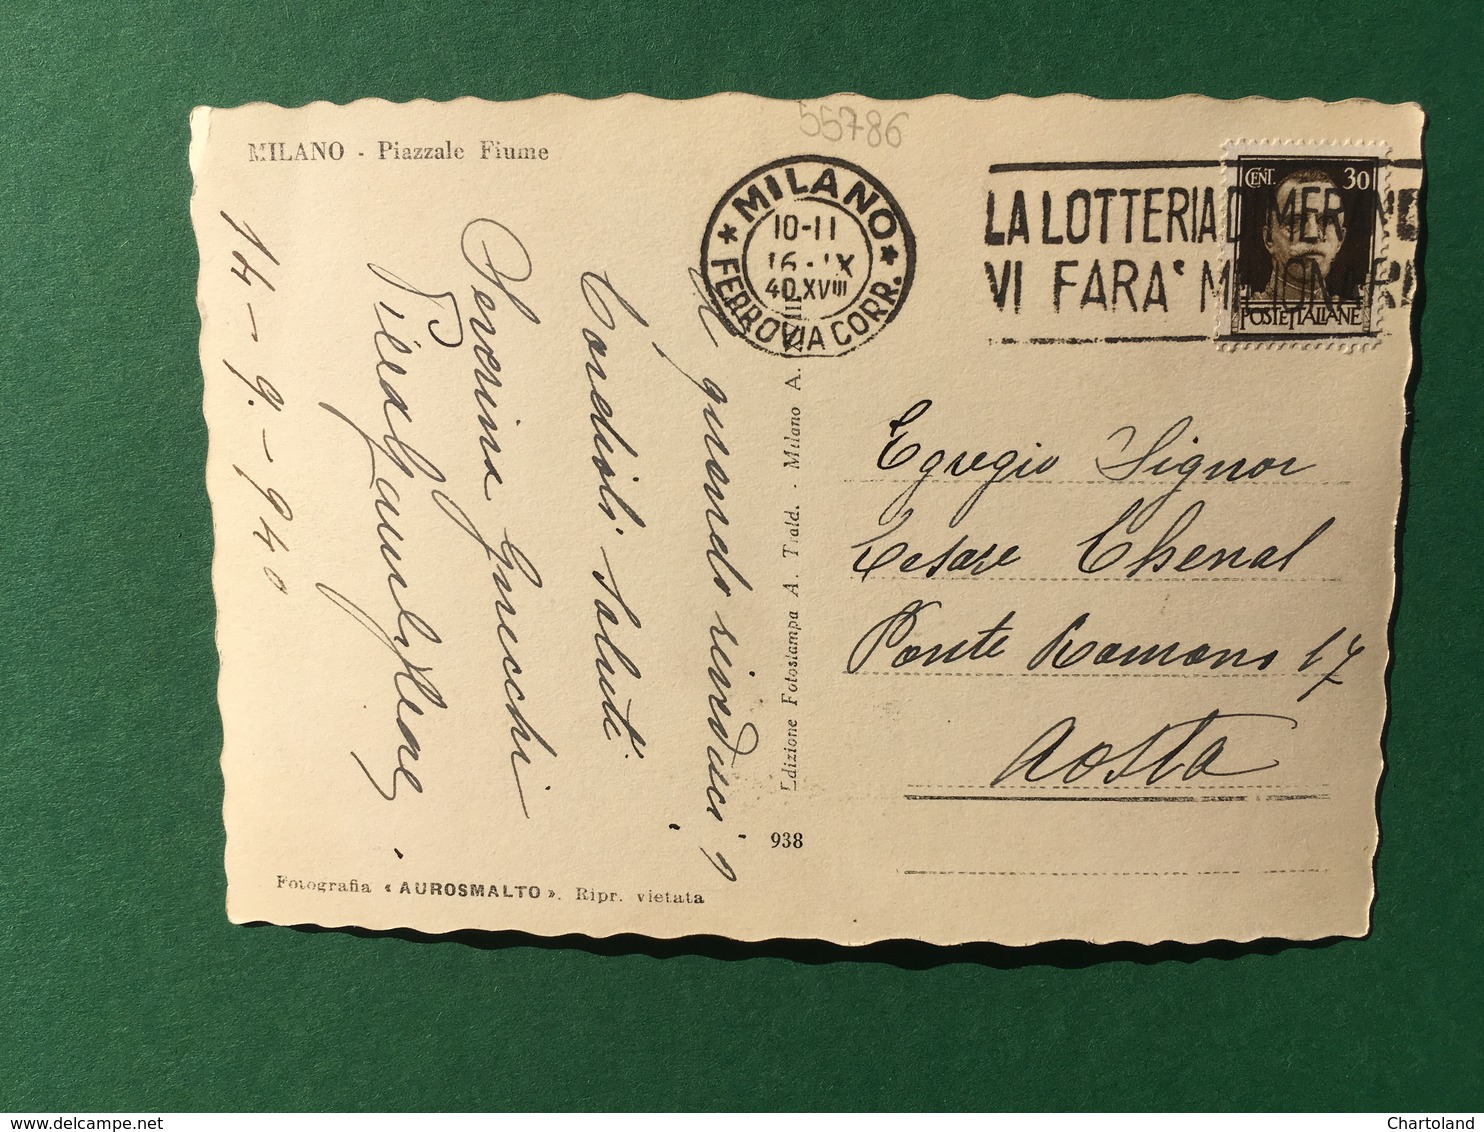 55786
MILANO - Piazzale Fiume
MILANO
10-11
16 · IX
40 XVIII
FERROVIA CORR.
LA LOTTERIA DI MERANO
VI FARA' MILIONARI
CENT. 30
POSTE ITALIANE
A quando rivederci?
Cordiali saluti
14-9.-940
Egregio Signor
Cesare Chenal
Ponte Romano 17
Aosta
Edizione Fotostampa A. Trald. - Milano A.
938
Fotografia « AUROSMALTO ». Ripr. vietata
delcampe.net
Chartoland